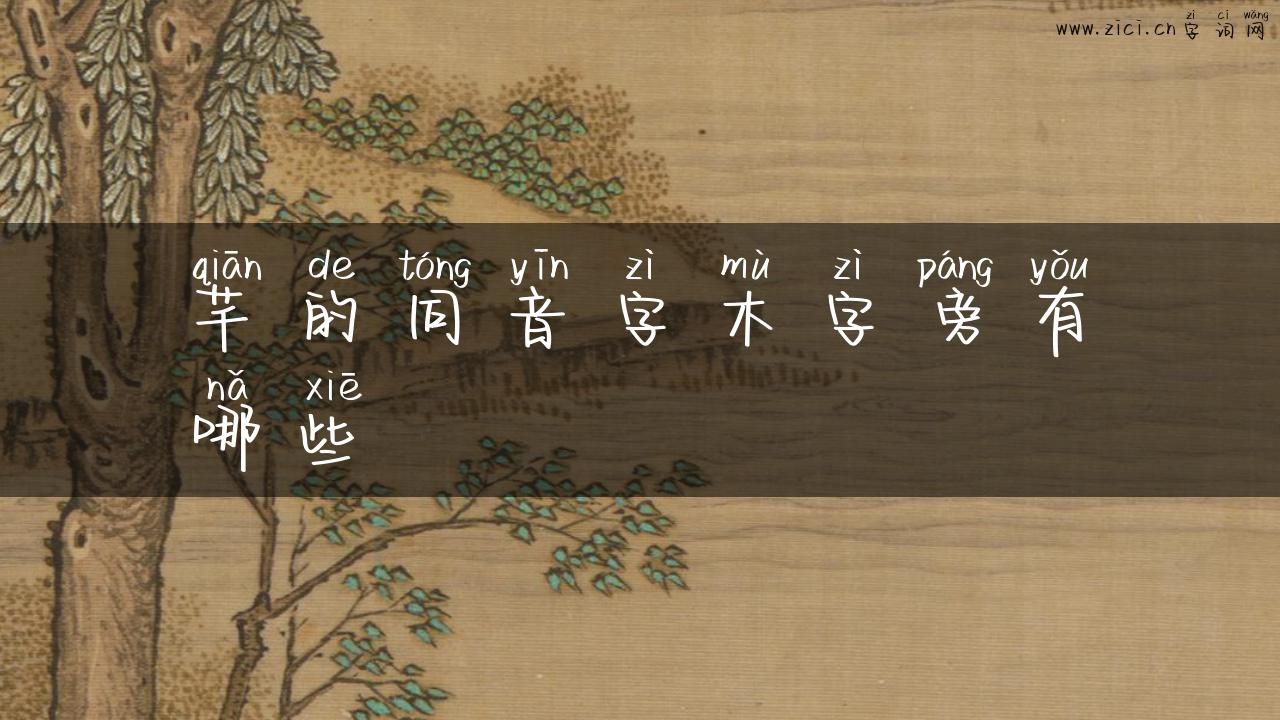 zì cí wǎng
www.zici.cn 字词网
qiān de tóng yīn zì mù zì páng yǒu
芊的同音字木字旁有
nǎ xiē
哪些